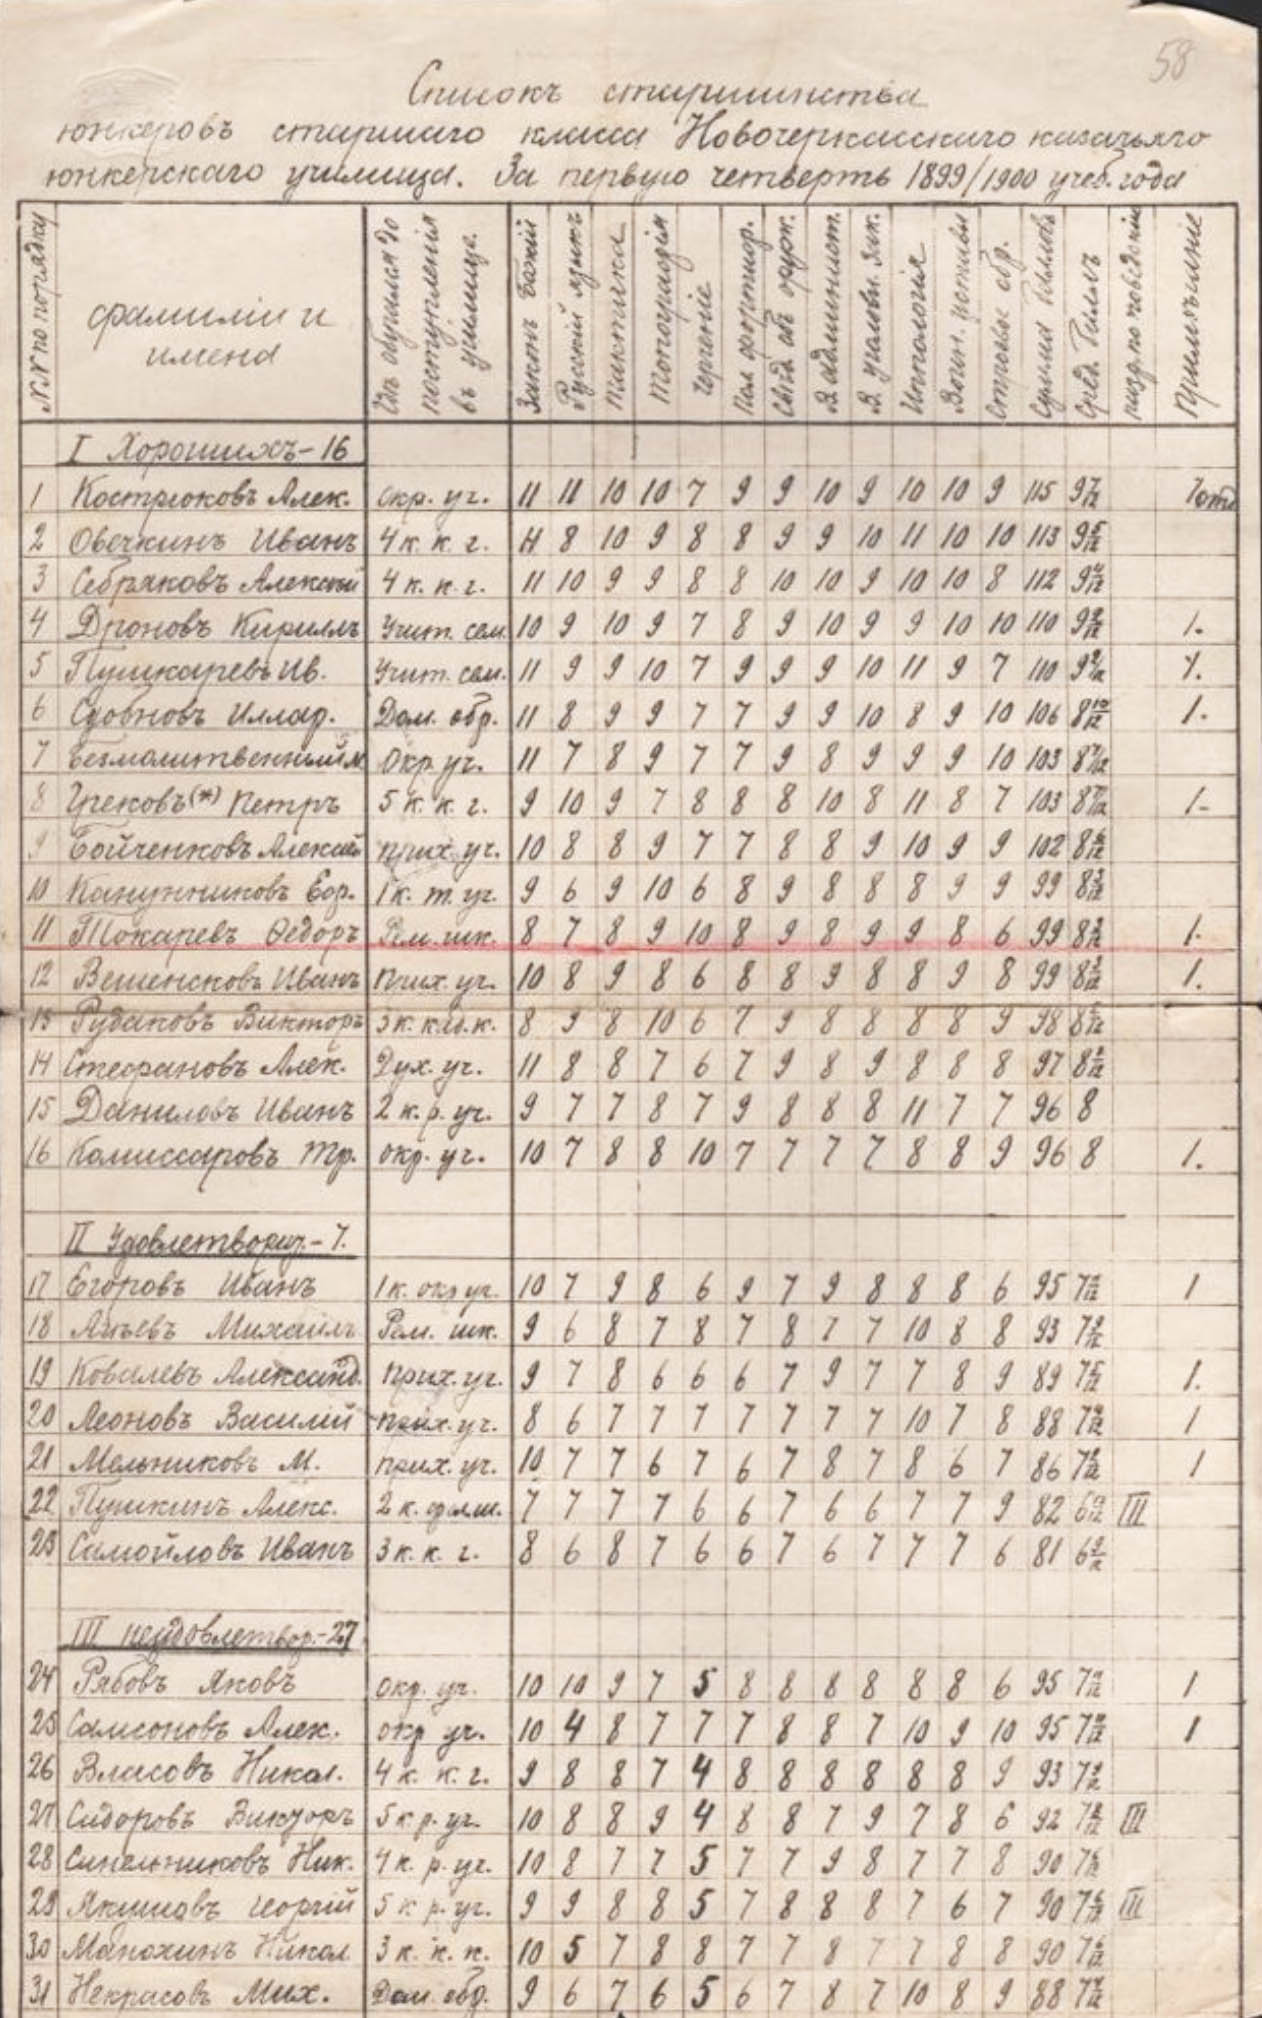 58
Списокъ старшинства
юнкеровъ старшаго класса Новочеркасскаго казачьяго
юнкерскаго училища. За первую четверть 1899/1900 учеб. года
№№ по порядку
фамиліи и
имена
Гдѣ обучался до
поступленія
въ училище.
Законъ Божій
Русскій языкъ
Тактика
Топографія
Черченіе
Пол. фортифор.
Свѣд. объ оруж.
В. администр.
В. уголовн. зак.
Иппологія
Строевое обр.
Сумма балловъ
Сред. баллъ
разр. по поведенію
Примѣчаніе
I Хорошихъ-16
1 Кострюковъ Алек. окр. уч. 11 11 10 10 7 9 9 10 9 10 10 9 115 9 7/12
2 Овечкинъ Иванъ 4 к. к. г. 11 8 10 9 8 8 9 9 10 11 10 10 113 9 5/12
3 Себряковъ Алексѣй 4 к. к. г. 11 10 9 9 8 8 10 10 9 10 10 8 112 9 4/12
4 Дроновъ Кириллъ Учит. сем. 10 9 10 9 7 8 9 10 9 9 10 10 110 9 2/12 1.
5 Пушкаревъ Ив. Учит. сем. 11 9 9 10 7 9 9 9 10 11 9 7 110 9 2/12 1.
6 Сдобновъ Иллар. Дом. обр. 11 8 9 9 7 7 9 9 10 8 9 10 106 8 10/12 1.
7 Безмолитвенный окр. уч. 11 7 8 9 7 7 9 8 9 9 9 10 103 8 7/12
8 Грековъ(*) Петръ 5 к. к. г. 9 10 9 7 8 8 8 10 8 11 8 7 103 8 7/12 1-
9 Бойченковъ Алексѣй прих. уч. 10 8 8 9 7 7 8 8 9 10 9 9 102 8 6/12
10 Канунниковъ Еф. 1 к. т. уч. 9 6 9 10 6 8 9 8 8 8 9 9 99 8 3/12
11 Токаревъ Ѳедоръ Рем. шк. 8 7 8 9 10 8 9 8 9 9 8 6 99 8 3/12 1.
12 Вешенсковъ Иванъ Прих. уч. 10 8 9 8 6 8 8 9 8 8 9 8 99 8 3/12 1.
13 Рудаковъ Викторъ 3 к. 8 9 8 10 6 7 9 8 8 8 8 9 98 8 2/12
14 Стефановъ Алек. Дух. уч. 11 8 8 7 6 7 9 8 9 8 8 8 97 8 1/12
15 Даниловъ Иванъ 2 к. р. уч. 9 7 7 8 7 9 8 8 8 11 7 7 96 8
16 Комиссаровъ Тр. окр. уч. 10 7 8 8 10 7 7 7 7 8 8 9 96 8 1.
II Удовлетвориt.-7.
17 Егоровъ Иванъ 1 к. окр уч. 10 7 9 8 6 9 7 9 8 8 8 6 95 7 11/12 1
18 Михаилъ Рем. шк. 9 6 8 7 8 7 8 7 7 10 8 8 93 7 9/12
19 Ковалевъ Александ. прих. уч. 9 7 8 6 6 6 7 9 7 7 8 9 89 7 5/12 1.
20 Леоновъ Василій прих. уч. 8 6 7 7 7 7 7 7 7 10 7 8 88 7 4/12 1
21 Мельниковъ М. прих. уч. 10 7 7 6 7 6 7 8 7 8 6 7 86 7 2/12 1
22 Пушкинъ Алекс. 2 к. 7 7 7 7 6 6 7 6 6 7 7 9 82 6 10/12 III
23 Самойловъ Иванъ 3 к. к. г. 8 6 8 7 6 6 7 6 7 7 7 6 81 6 9/12
III неудовлетвор.-27
24 Рябовъ Яковъ окр. уч. 10 10 9 7 5 8 8 8 8 8 8 6 95 7 11/12 1
25 Самсоновъ Алек. окр уч. 10 4 8 7 7 7 8 8 7 10 9 10 95 7 11/12 1
26 Власовъ Никол. 4 к. к. г. 9 8 8 7 4 8 8 8 8 8 8 9 93 7 9/12
27 Сидоровъ Викторъ 5 к р. уч. 10 8 8 9 4 8 8 7 9 7 8 6 92 7 8/12 III
28 Синельниковъ Ник. 4 к. р. уч. 10 8 7 7 5 7 7 9 8 7 7 8 90 7 6/12
29 Якушовъ Георгій 5 к р. уч. 9 9 8 8 5 7 8 8 8 7 6 7 90 7 6/12 III
30 Манохинъ Никол 3 к. к. к. 10 5 7 8 8 7 7 8 7 7 8 8 90 7 6/12
31 Некрасовъ Мих. Дом. обр. 9 6 7 6 5 6 7 8 7 10 8 9 88 7 4/12